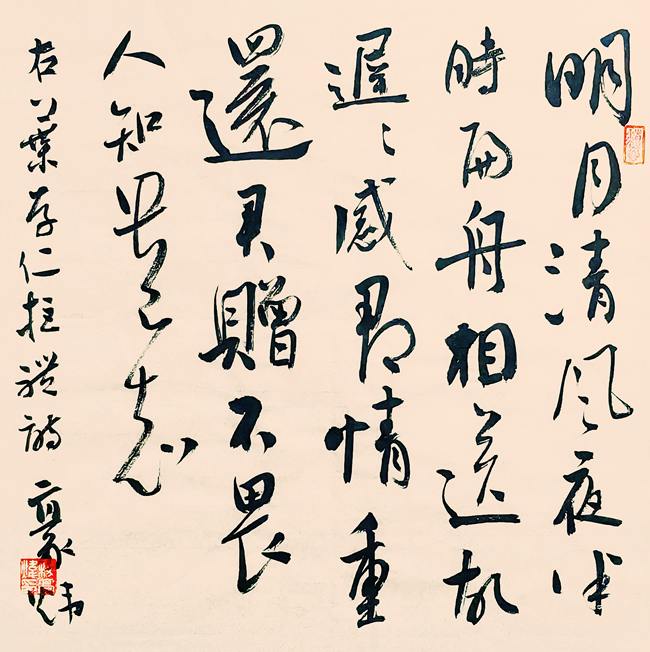 明月清風夜半
時扁舟相送故
遲〻感郡情重
還君贈不畏
人知畏己知
右葉存仁拒禮詩 豪煒